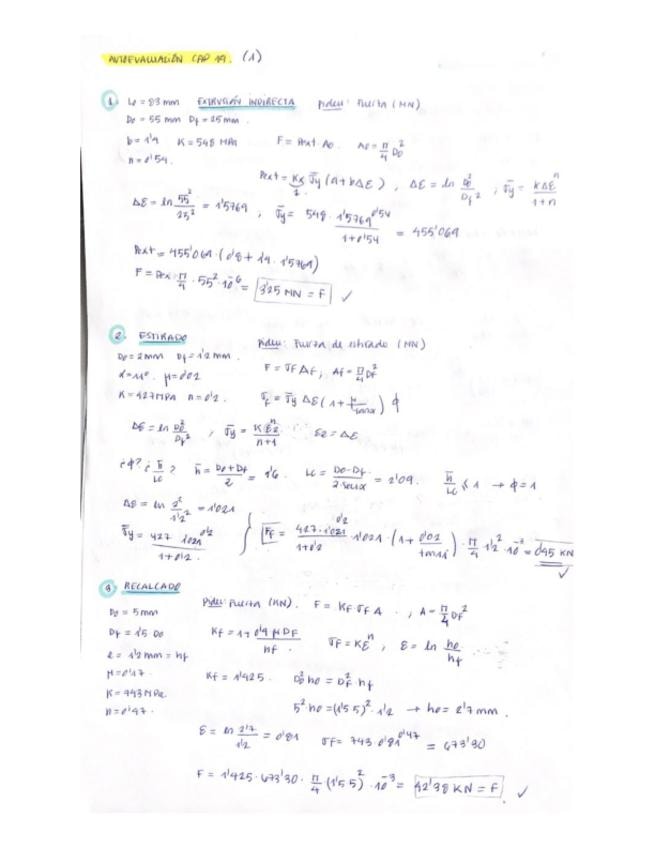 AUTOEVALUACIÓN CAP 19. (1)
1. L0 = 83 mm EXTRUSIÓN INDIRECTA Piden: Fuerza (MN)
D0 = 55 mm Df = 25 mm.
b = 1'4 K = 548 MPa F = Pext · A0. A0 = π/4 D0²
n = 0'54.
Pext = Kx σ̄y (a + bΔE), ΔE = ln D0²/Df², σ̄y = KΔEⁿ/1+n
ΔE = ln 55²/25² = 1'5769, σ̄y = 548 · 1'5769^0'54/1+0'54 = 455'064
Pext = 455'064 · (0'8 + 1'4 · 1'5769)
F = Pext π/4 · 55² · 10⁻⁶ = 3'25 MN = F ✓
2. ESTIRADO Piden: Fuerza de estirado (MN)
D0 = 2 mm Df = 1'2 mm.
α = 11º. μ = 0'02 F = σF Af, Af = π/4 Df²
K = 427 MPa n = 0'2. σF = σ̄y ΔE (1 + μ/tanα) ϕ
ΔE = ln D0²/Df², σ̄y = K E2ⁿ/n+1 E2 = ΔE
¿ϕ? ¿h̄/Lc? h̄ = D0+Df/2 = 1'6 Lc = D0-Df/2 senα = 2'09. h̄/Lc ≤ 1 → ϕ = 1.
ΔE = ln 2²/1'2² = 1'021
σ̄y = 427 1'021^0'2/1+0'2. FF = 427 · 1'021^0'2/1+0'2 · 1'021 · (1 + 0'02/tan11) · π/4 1'2² · 10⁻³ = 0'45 KN ✓
3. RECALCADO
D0 = 5 mm Piden: Fuerza (KN). F = KF · σF A., A = π/4 Df²
Df = 1'5 D0 KF = 1 + 0'4 μ DF/hf. σF = KEⁿ, E = ln h0/hf
e = 1'2 mm = hf
μ = 0'17. KF = 1'425. D0² h0 = DF² · hf
K = 743 MPa. 5² · h0 = (1'5 5)² · 1'2 → h0 = 2'7 mm.
n = 0'47.
E = ln 2'7/1'2 = 0'81 σF = 743 · 0'81^0'47 = 673'30
F = 1'425 · 673'30 · π/4 (1'5 5)² · 10⁻³ = 42'38 KN = F. ✓